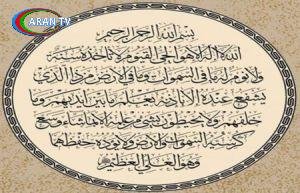 ARAN TV
بسم الله الرحمن الرحيم
الله لا إله إلا هو الحي القيوم لا تأخذه سنة
ولا نوم له ما في السموات وما في الأرض من ذا الذي
يشفع عنده إلا بإذنه يعلم ما بين أيديهم وما
خلفهم ولا يحيطون بشيء من علمه إلا بما شاء وسع
كرسيه السموات والأرض ولا يؤوده حفظهما
وهو العلي العظيم